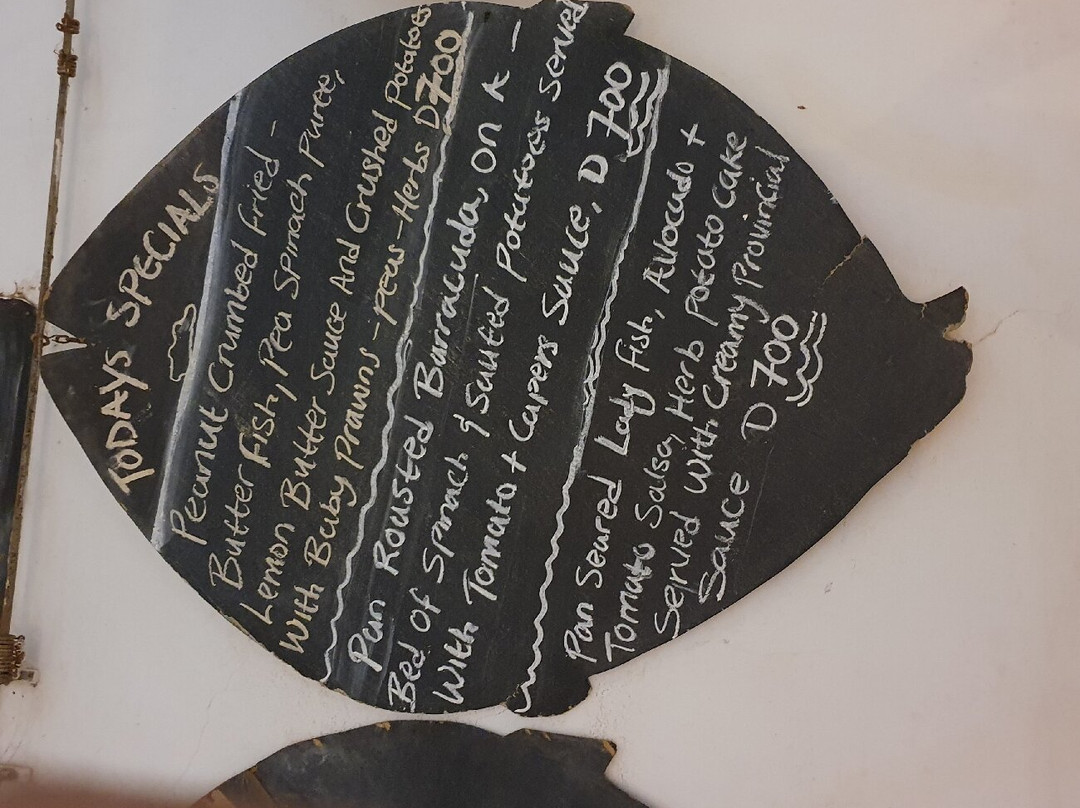 TODAYS SPECIALS
Peanut Crumbed Fried -
Butter Fish, Pea Spinach Puree,
Lemon Butter Sauce And Crushed Potatoes
With Baby Prawns - Peas - Herbs D700
Pan Roasted Barracuda, On A -
Bed Of Spinach & Sauted Potatoes Served
With Tomato + Capers Sauce, D 700
Pan Seared Lady Fish, Avocado +
Tomato Salsa, Herb Potato Cake
Served With Creamy Provincial
Sauce D 700